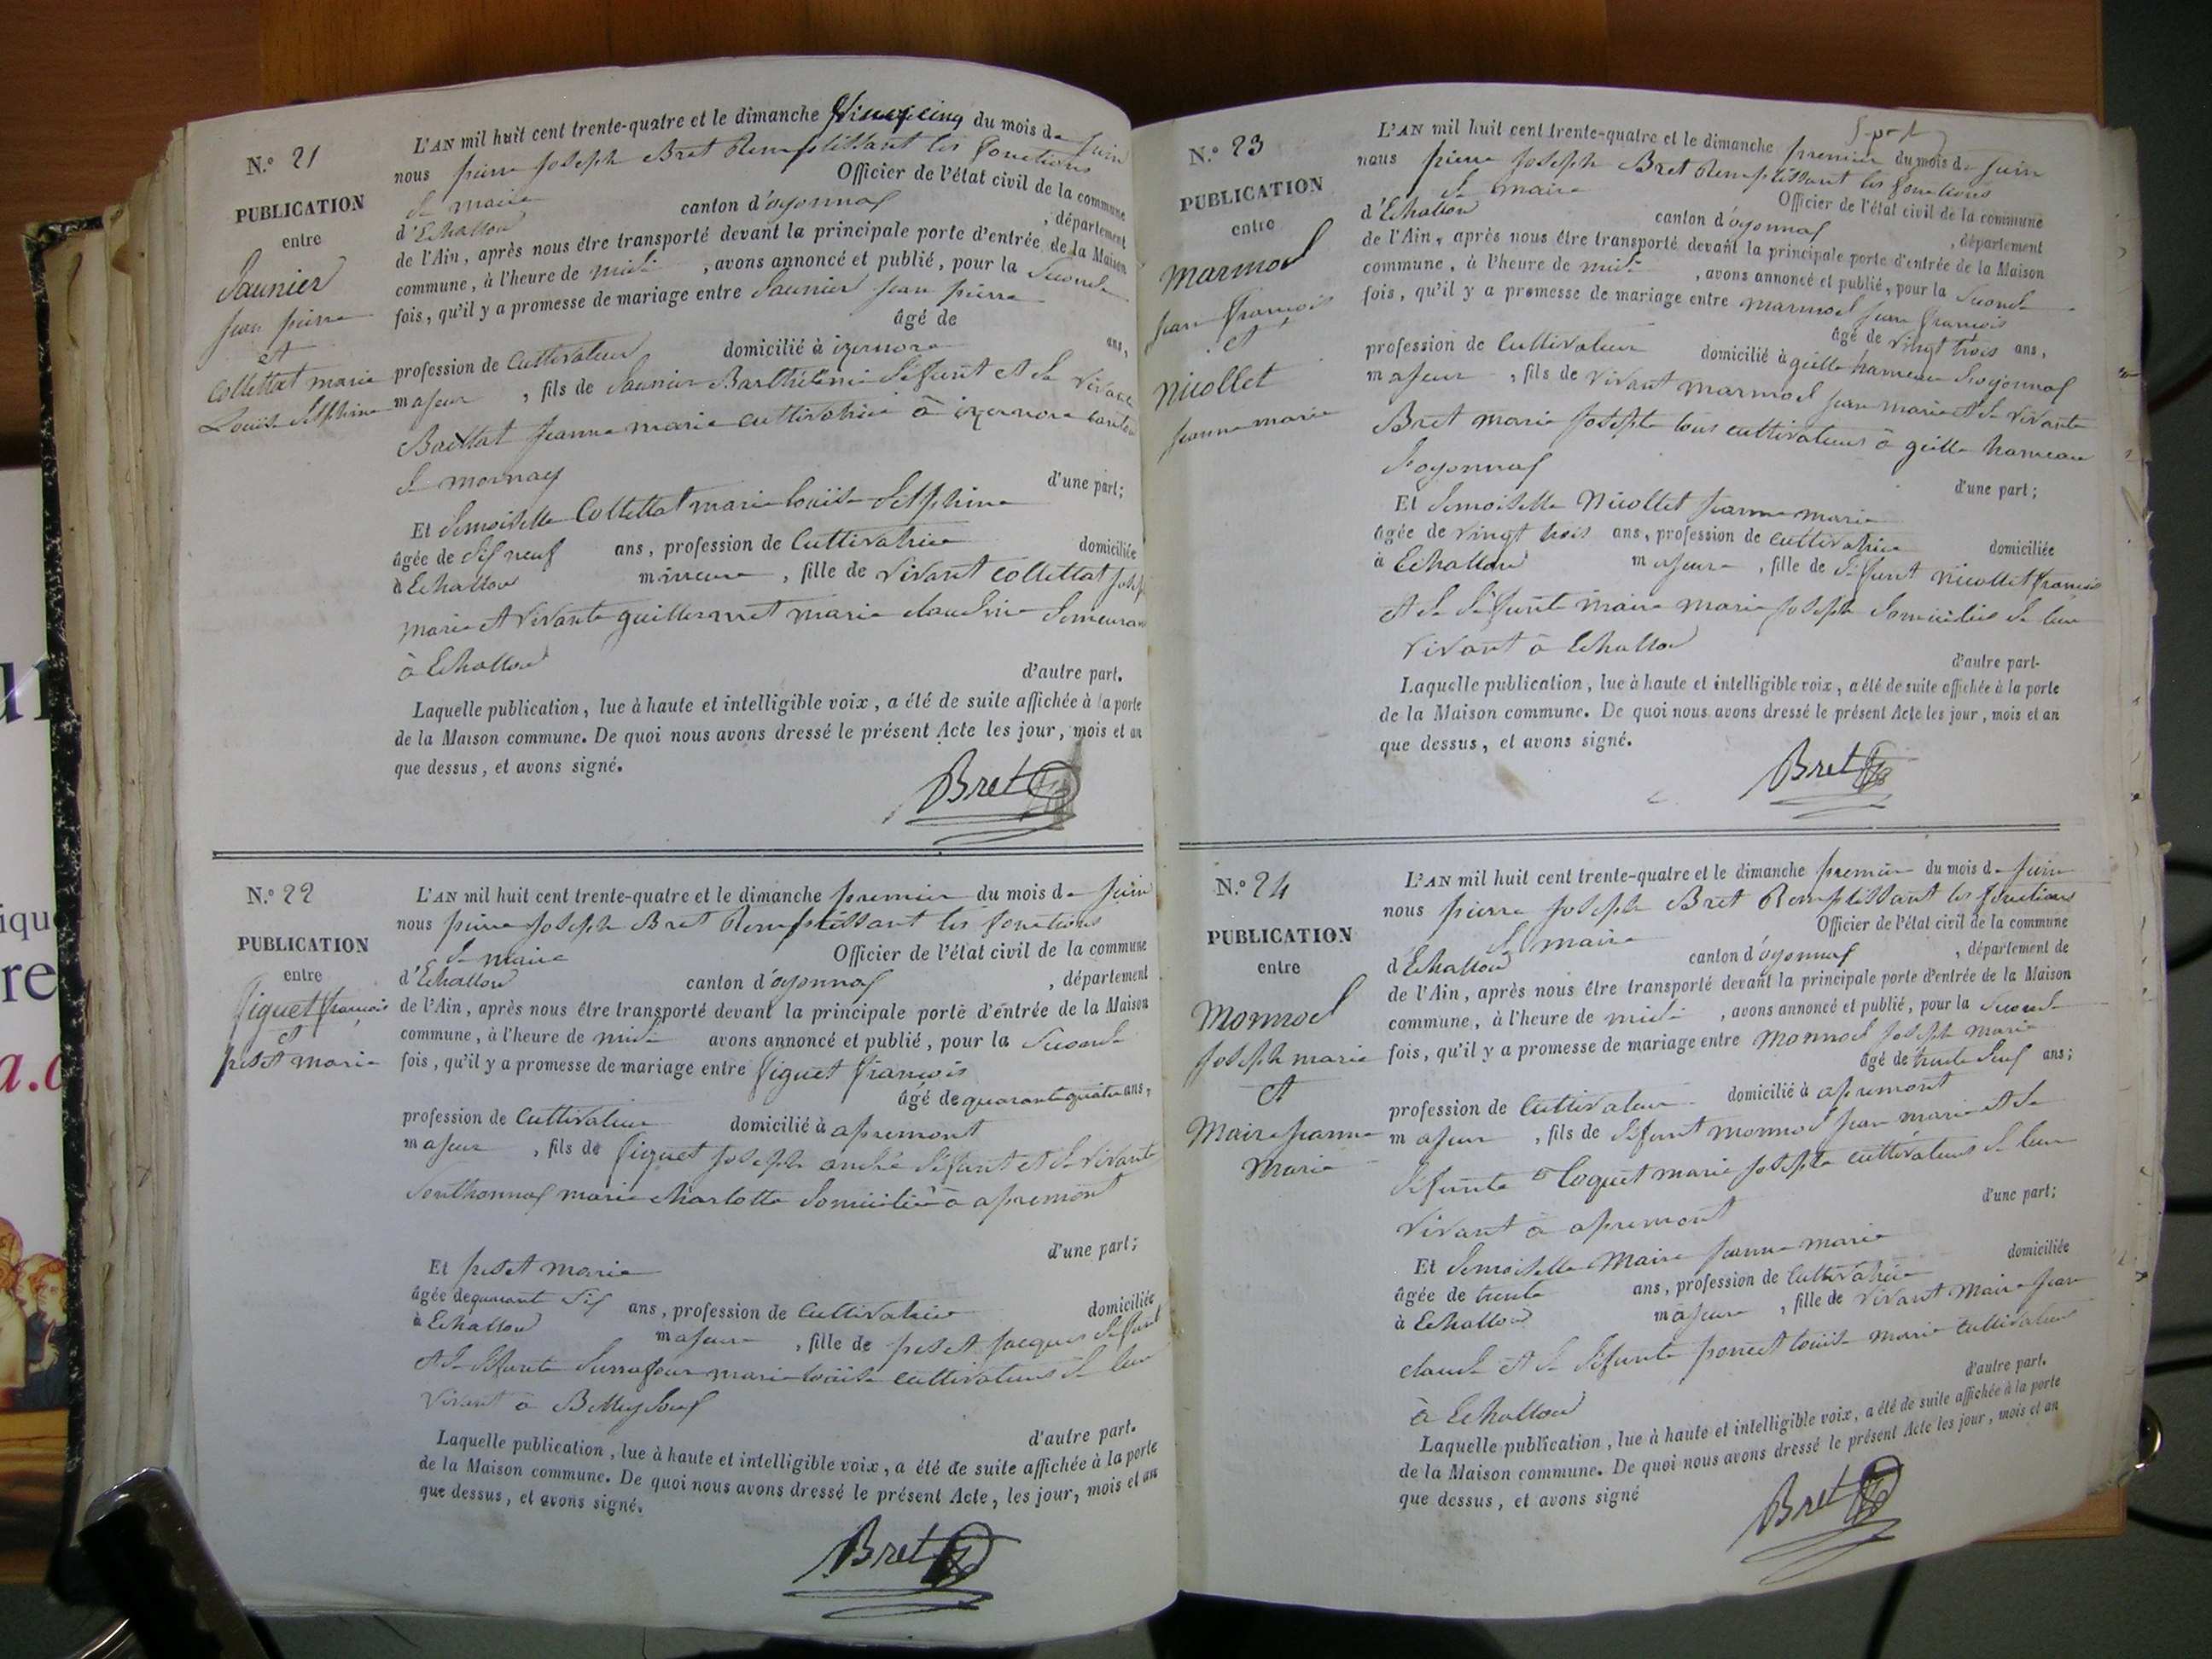 N.º 21
PUBLICATION
entre
Saunier
jean pierre
et
Collettat marie
Louise delphine
L'AN mil huit cent trente-quatre et le dimanche du mois de juin
nous pierre joseph Bret Remplissant les fonctions
de maire Officier de l'état civil de la commune
d'Echallon canton d'oyonnax , département
de l'Ain, après nous être transporté devant la principale porte d'entrée de la Maison
commune, à l'heure de midi , avons annoncé et publié, pour la seconde
fois, qu'il y a promesse de mariage entre Saunier jean pierre
âgé de ans,
profession de Cultivateur domicilié à izernore
majeur , fils de Saunier Barthélemi défunt et de vivante
jeanne marie cultivatrice à izernore canton
de mornay d'une part;
Et demoiselle Collettat marie louise delphine
âgée de dix neuf ans, profession de Cultivatrice domiciliée
à Echallon mineure , fille de vivant collettat joseph
marie et vivante guillermet marie claudine demeurant
à Echallon d'autre part.
Laquelle publication, lue à haute et intelligible voix, a été de suite affichée à la porte
de la Maison commune. De quoi nous avons dressé le présent Acte les jour, mois et an
que dessus, et avons signé.
Bret
N.º 22
PUBLICATION
entre
figuet françois
et
petet marie
L'AN mil huit cent trente-quatre et le dimanche premier du mois de juin
nous pierre joseph Bret Remplissant les fonctions
de maire Officier de l'état civil de la commune
d'Echallon canton d'oyonnax , département
de l'Ain, après nous être transporté devant la principale porte d'entrée de la Maison
commune, à l'heure de midi avons annoncé et publié, pour la seconde
fois, qu'il y a promesse de mariage entre figuet françois
âgé de quarante quatre ans,
profession de Cultivateur domicilié à apremont
majeur , fils de figuet joseph andré défunt et de vivante
marie charlotte domiciliée à apremont
d'une part;
Et petet marie
âgée de quarante six ans, profession de Cultivatrice domiciliée
à Echallon majeure , fille de petet jacques défunt
et de défunte marie louise cultivateurs de leur
vivant à
d'autre part.
Laquelle publication, lue à haute et intelligible voix, a été de suite affichée à la porte
de la Maison commune. De quoi nous avons dressé le présent Acte, les jour, mois et an
que dessus, et avons signé.
Bret
N.º 23
PUBLICATION
entre
marmod
jean françois
et
nicollet
jeanne marie
L'AN mil huit cent trente-quatre et le dimanche premier du mois de juin
nous pierre joseph Bret Remplissant les fonctions
de maire Officier de l'état civil de la commune
d'Echallon canton d'oyonnax , département
de l'Ain, après nous être transporté devant la principale porte d'entrée de la Maison
commune, à l'heure de midi , avons annoncé et publié, pour la seconde
fois, qu'il y a promesse de mariage entre marmod jean françois
âgé de vingt trois ans,
profession de Cultivateur domicilié à geilla hameau d'oyonnax
majeur , fils de vivant marmod jean marie et de vivante
Bret marie josephte tous cultivateurs à geilla hameau
d'oyonnax d'une part;
Et demoiselle Nicollet jeanne marie
âgée de vingt trois ans, profession de cultivatrice domiciliée
à Echallon majeure , fille de défunt nicollet françois
et de défunte maire marie joseph domiciliés de leur
vivant à Echallon d'autre part-
Laquelle publication, lue à haute et intelligible voix, a été de suite affichée à la porte
de la Maison commune. De quoi nous avons dressé le présent Acte les jour, mois et an
que dessus, et avons signé.
Bret
N.º 24
PUBLICATION
entre
Monnod
joseph marie
et
Maire jeanne
Marie
L'AN mil huit cent trente-quatre et le dimanche premier du mois de juin
nous pierre joseph Bret Remplissant les fonctions
de maire Officier de l'état civil de la commune
d'Echallon canton d'oyonnax , département de
de l'Ain, après nous être transporté devant la principale porte d'entrée de la Maison
commune, à l'heure de midi , avons annoncé et publié, pour la seconde
fois, qu'il y a promesse de mariage entre Monnod joseph marie
âgé de trente ans;
profession de Cultivateur domicilié à apremont
majeur , fils de défunt monnod jean marie et de
défunte Coquet marie josephte cultivateurs de leur
vivant à apremont d'une part;
Et demoiselle Maire jeanne marie
âgée de trente ans, profession de Cultivatrice domiciliée
à Echallon majeure , fille de vivant Maire jean
claude et de défunte poncet louise marie cultivateurs
à Echallon d'autre part.
Laquelle publication, lue à haute et intelligible voix, a été de suite affichée à la porte
de la Maison commune. De quoi nous avons dressé le présent Acte les jour, mois et an
que dessus, et avons signé
Bret